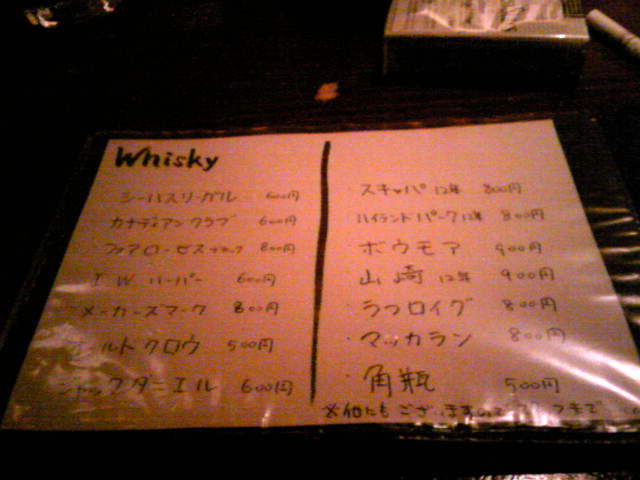 Whisky
シーバスリーガル 600円
カナディアンクラブ 600円
フォアローゼス ブラック 800円
I W ハーパー 600円
メーカーズマーク 800円
オールドクロウ 500円
ジャックダニエル 600円
・スキャパ 12年 800円
・ハイランドパーク 12年 800円
・ボウモア 900円
・山崎 12年 900円
・ラフロイグ 800円
・マッカラン 800円
・角瓶 500円
※他にもございますので